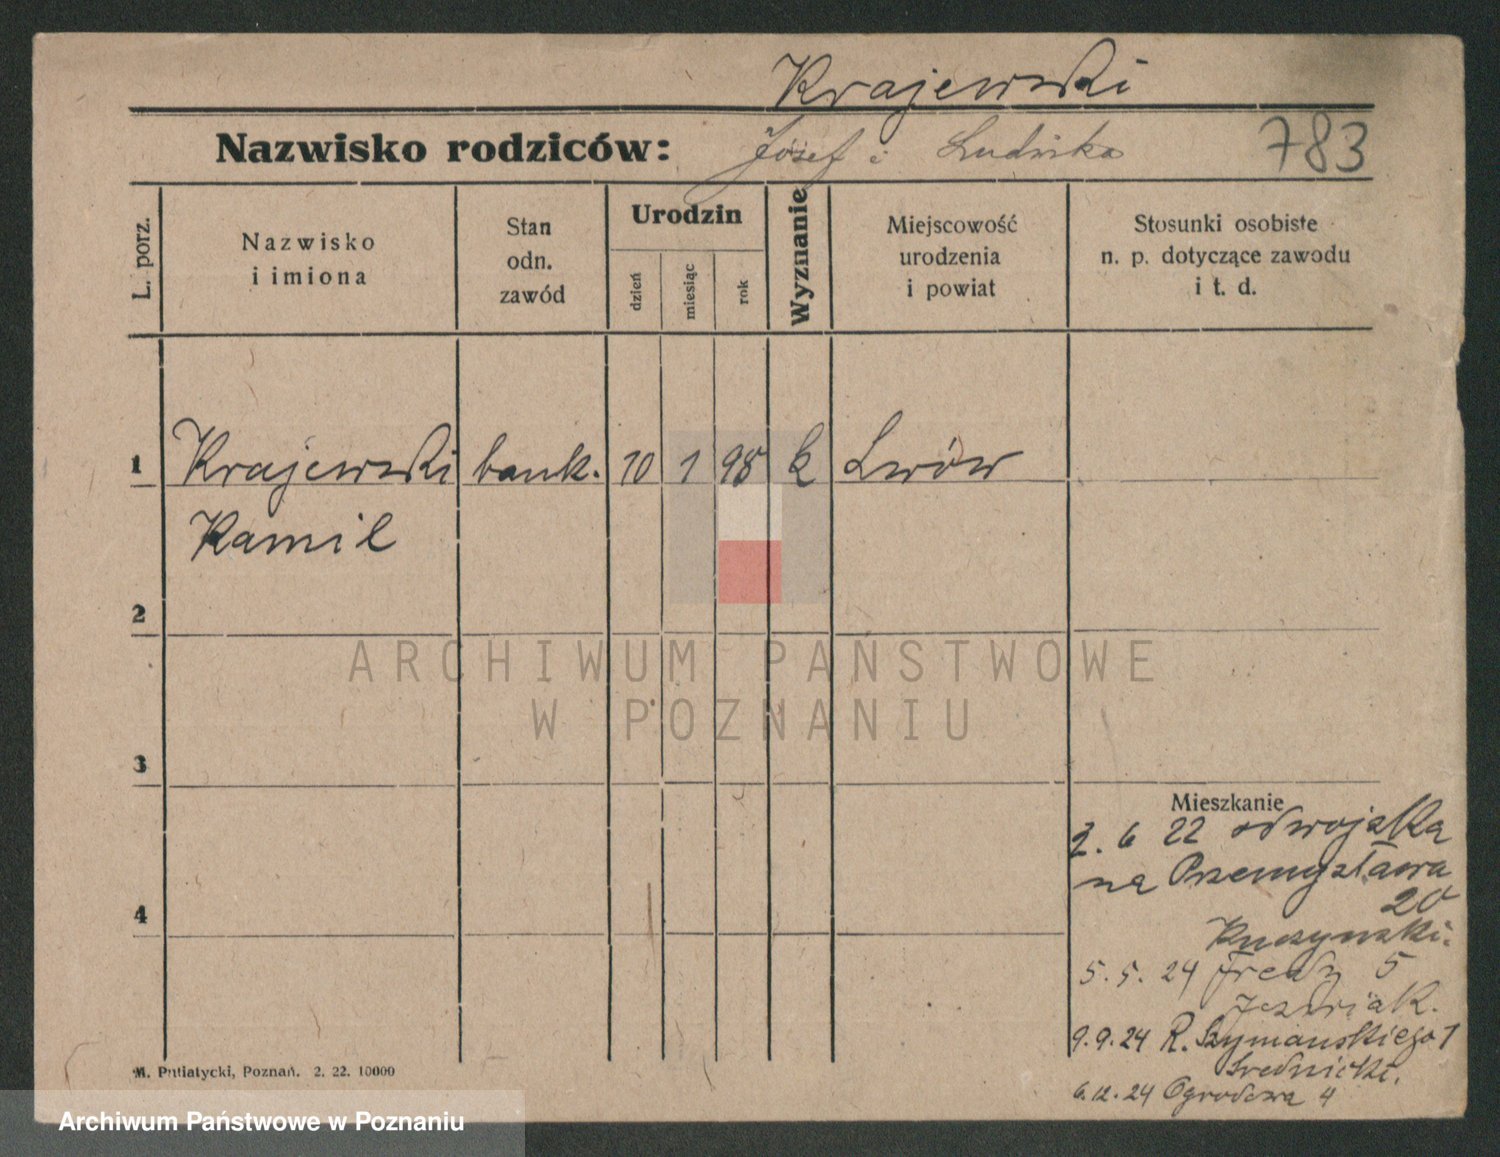 Krajewski
Nazwisko rodziców: Józef i Ludwika 783
L. porz.
Nazwisko
i imiona
Stan
odn.
zawód
Urodzin
dzień
miesiąc
rok
Wyznanie
Miejscowość
urodzenia
i powiat
Stosunki osobiste
n. p. dotyczące zawodu
i t. d.
1 Krajewski bank. 10 1 98 k Lwów
Kamil
2
ARCHIWUM PAŃSTWOWE
W POZNANIU
3
Mieszkanie
2. 6 22 od wojska
na Przemysława
20
4
5. 5. 24 Fredry 5
9. 9. 24 R. Szymańskiego 1
Średnicki.
6.12.24 Ogrodowa 4
M. Putiatycki, Poznań. 2. 22. 10000
Archiwum Państwowe w Poznaniu